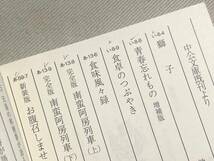 中公文庫既刊より
い-8-4
獅子
い-8-8
青春忘れもの 増補版
い-8-9
食卓のつぶやき
あ-13-6
食味風々録
あ-13-8
完全版 南蛮阿房列車(上)
あ-13-9
完全版 南蛮阿房列車(下)
新装版 お腹召しませ